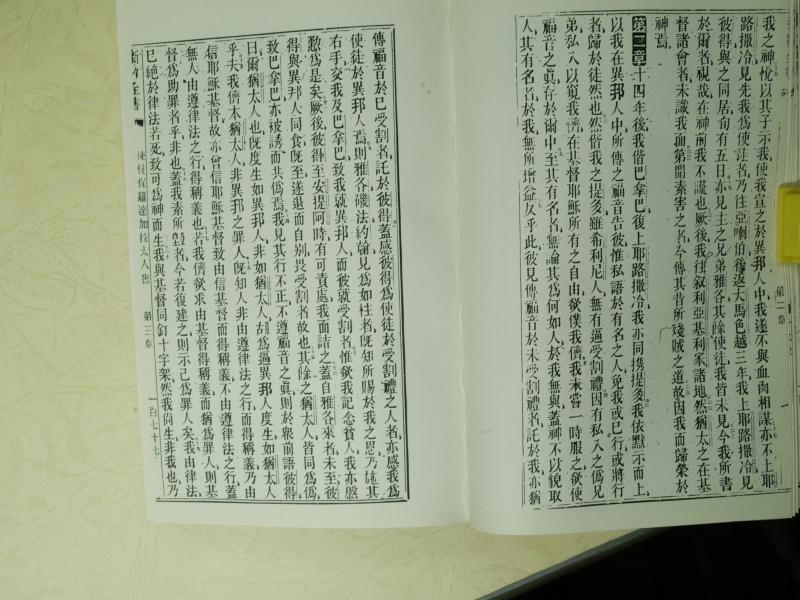 我之神悅以其子示我使我宣之於異邦人中我遂不與血肉相謀亦不上耶
路撒冷見先我爲使徒者乃往亞喇伯後返大馬色越三年我上耶路撒冷見
彼得與之同居旬有五日亦見主之兄弟雅各其餘使徒我皆未見今我所書
於爾者視哉在神前我不謊也厥後我往叙利亞基利家諸地然猶太之在基
督諸會者未識我面第聞素害之者今傳其昔所殘賊之道故因我而歸榮於
神焉
第二章十四年後我偕巴拿巴復上耶路撒冷我亦同携提多我依默示而上
以我在異邦人中所傳之福音告彼惟私語於有名之人免我或已行或將行
者歸於徒然也然偕我之提多雖希利尼人無有逼受割禮因有私入之僞兄
弟私入以窺我儕在基督耶穌所有之自由欲僕我儕我未嘗一時服之欲使
福音之眞存於爾中至其有名者無論其爲何如人於我無與蓋神不以貌取
人其有名者於我無所增益反乎此彼見傳福音於未受割禮者託於我亦猶
傳福音於已受割者託於彼得蓋感彼得爲使徒於受割禮之人者亦感我爲
使徒於異邦人焉則雅各磯法約翰見爲如柱者旣知所賜於我之恩乃施其
右手交我及巴拿巴致我就異邦人而彼就受割者惟欲我記念貧人我亦慇
懃爲是矣厥後彼得至安提阿時有可責處我面詰之蓋自雅各來者未至彼
得與異邦人同食旣至遂退而自别畏受割者故也其餘之猶太人皆同爲僞
致巴拿巴亦被誘而共僞焉我見其行不正不遵福音之眞則於衆前語彼得
曰爾猶太人也旣度生如異邦人非如猶太人胡爲逼異邦人度生如猶太人
乎夫我儕本猶太人非異邦之罪人旣知人非由遵律法之行而得稱義乃由
信耶穌基督故亦曾信耶穌基督致由信基督而得稱義不由遵律法之行蓋
無人由遵律法之行得稱義也若我儕欲求由基督得稱義而猶爲罪人則基
督爲助罪者乎非也蓋我素所毀者今若復建之則示己爲罪人矣我由律法
已絕於律法若死致可爲神而生我與基督同釘十字架然我尙生非我也乃
新約全書 使徒保羅達加拉太人書 第三章 一百七十七
第二章